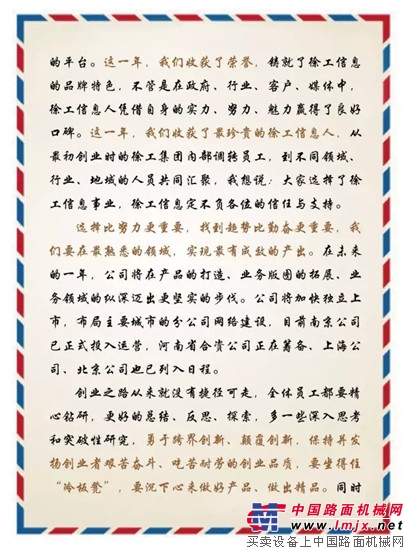 的平台。这一年，我们收获了荣誉，铸就了徐工信息
的品牌特色，不管是在政府、行业、客户、媒体中，
徐工信息人凭借自身的实力、努力、魅力赢得了良好
口碑。这一年，我们收获了最珍贵的徐工信息人，从
最初创业时的徐工集团内部调转员工，到不同领域、
行业、地域的人员共同汇聚，我想说：大家选择了徐
工信息事业，徐工信息定不负各位的信任与支持。
选择比努力更重要，找到趋势比勤奋更重要，我
们要在最熟悉的领域，实现最有成效的产出。在未来
的一年，公司将在产品的打造、业务版图的拓展、业
务领域的纵深迈出更坚实的步伐。公司将加快独立上
市，布局主要城市的分公司网络建设，目前南京公司
已正式投入运营，河南省合资公司正在筹备、上海公
司、北京公司也已列入日程。
创业之路从来就没有捷径可走，全体员工都要精
心钻研，更好的总结、反思、探索，多一些深入思考
和突破性研究，勇于跨界创新、颠覆创新，保持并发
扬创业者艰苦奋斗、吃苦耐劳的创业品质，要坐得住
“冷板凳”，要沉下心来做好产品、做出精品。同时
中国路面机械网
www.lmjx.net
买卖设备上中国路面机械网